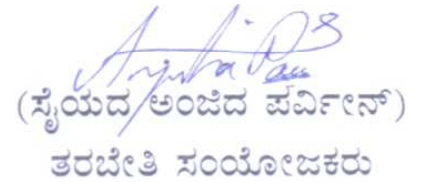 (ಸೈಯದ ಅಂಜಿದ ಪರ್ವೀನ್)
ತರಬೇತಿ ಸಂಯೋಜಕರು